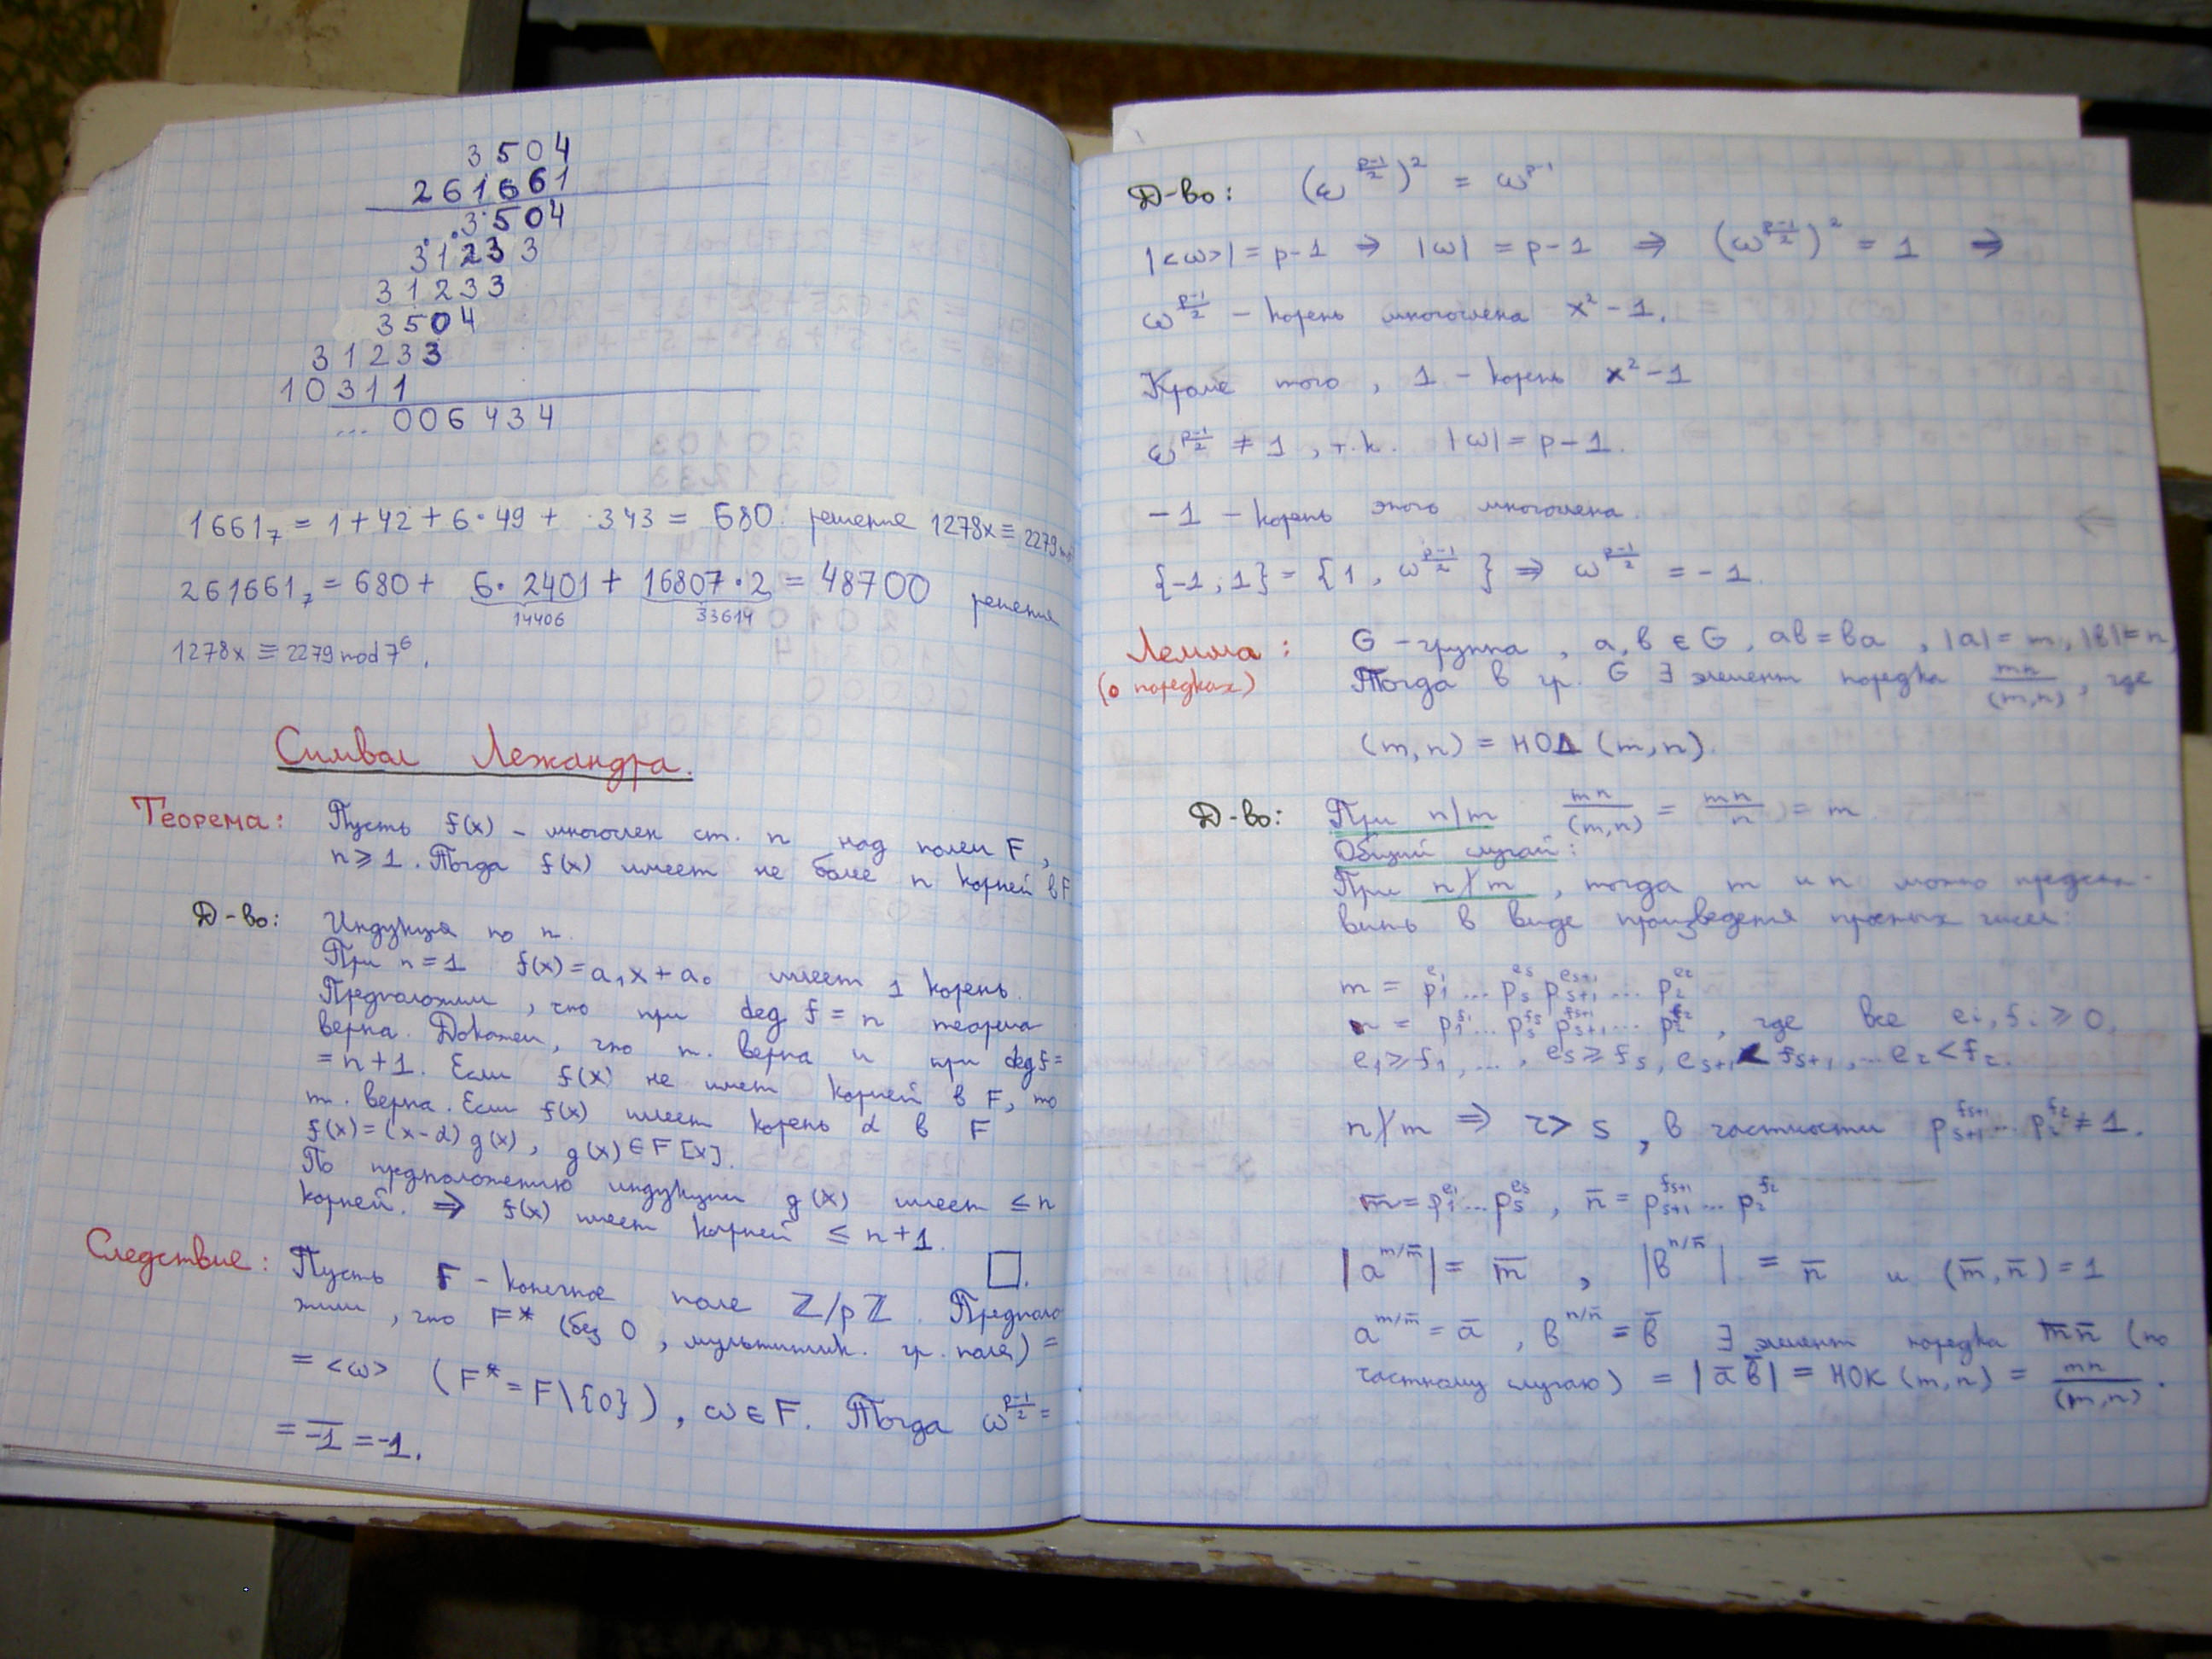 3504
261661
3504
31233
31233
3504
31233
10311
...006434
1661₇ = 1+42+6·49+ ·343 = 680. решение 1278x ≡ 2279 mo
261661₇ = 680 + 6·2401 + 16807·2 = 48700 решения
14406 33614
1278x ≡ 2279 mod 7⁶.
Символ Лежандра.
Теорема: Пусть f(x) – многочлен ст. n над полем F,
n ⩾ 1. Тогда f(x) имеет не более n корней в F
Д-во: Индукция по n.
При n=1 f(x) = a₁x + a₀ имеет 1 корень.
Предположим, что при deg f = n теорема
верна. Докажем, что т. верна и при deg f =
= n+1. Если f(x) не имеет корней в F, то
т. верна. Если f(x) имеет корень α в F
f(x) = (x-α) g(x), g(x) ∈ F[x].
По предположению индукции g(x) имеет ≤ n
корней. ⇒ f(x) имеет корней ≤ n+1.
□.
Следствие: Пусть F – конечное поле ℤ/pℤ. Предполо
жим, что F* (без 0, мультиплик. гр. поля) =
= <ω> (F* = F\{0}), ω ∈ F. Тогда ω^{\frac{p-1}{2}} =
= \overline{-1} = -1.
Д-во: (ω^{\frac{p-1}{2}})² = ω^{p-1}
|<ω>| = p-1 ⇒ |ω| = p-1 ⇒ (ω^{\frac{p-1}{2}})² = 1 ⇒
ω^{\frac{p-1}{2}} – корень многочлена x² - 1.
Кроме того, 1 – корень x² - 1
ω^{\frac{p-1}{2}} ≠ 1, т.к. |ω| = p-1.
-1 – корень этого многочлена.
{-1, 1} = {1, ω^{\frac{p-1}{2}}} ⇒ ω^{\frac{p-1}{2}} = -1.
Лемма: G – группа, a, b ∈ G, ab = ba, |a| = m, |b| = n,
(о порядках) Тогда в гр. G ∃ элемент порядка \frac{mn}{(m,n)}, где
(m,n) = НОД (m,n).
Д-во: При n|m \frac{mn}{(m,n)} = \frac{mn}{n} = m
Общий случай:
При n∤m, тогда m и n можно предста-
вить в виде произведения простых чисел:
m = p₁^{e₁} ... p_s^{e_s} p_{s+1}^{e_{s+1}} ... p_r^{e_r}
n = p₁^{f₁} ... p_s^{f_s} p_{s+1}^{f_{s+1}} ... p_r^{f_r}, где все e_i, f_i ⩾ 0,
e₁ ⩾ f₁, ..., e_s ⩾ f_s, e_{s+1} < f_{s+1}, ... e_r < f_r.
n∤m ⇒ r > s, в частности p_{s+1}^{f_{s+1}} ... p_r^{f_r} ≠ 1.
\overline{m} = p₁^{e₁} ... p_s^{e_s}, \overline{n} = p_{s+1}^{f_{s+1}} ... p_r^{f_r}
|a^{m/\overline{m}}| = \overline{m}, |b^{n/\overline{n}}| = \overline{n} и (\overline{m}, \overline{n}) = 1
a^{m/\overline{m}} = \overline{a}, b^{n/\overline{n}} = \overline{b} ∃ элемент порядка \overline{m}\overline{n} (по
частному случаю) = |\overline{a}\overline{b}| = НОК (m,n) = \frac{mn}{(m,n)}.